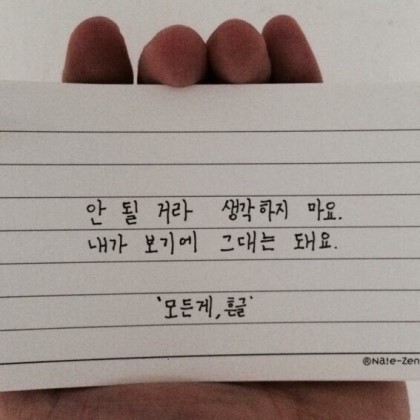 안 될 거라 생각하지 마요.
내가 보기에 그대는 돼요.
'모든게, 흔글'
®Nate-Zen